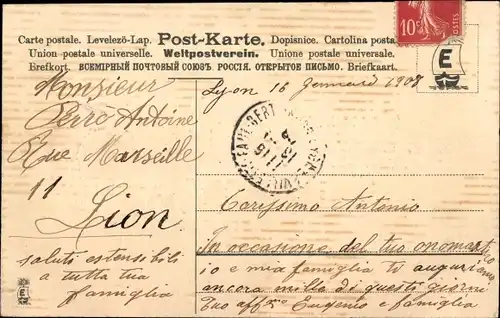 Carte postale. Levelező-Lap. Post-Karte. Dopisnice. Cartolina postale.
Union postale universelle. Weltpostverein. Unione postale universale.
Brefkort. ВСЕМІРНЫЙ ПОЧТОВЫЙ СОЮЗЪ РОССІЯ. ОТКРЫТОЕ ПИСЬМО. Briefkaart.
10
E
Monsieur
Perrò Antoine
Rue Marseille
11
Lion
saluti estensibili
a tutta tua
famiglia
E
Lyon 16 Gennaio 1908
Carissimo Antonio
In occasione del tuo onomastico
io e mia famiglia ti auguriamo
ancora mille di questi giorni
Tuo aff.mo Eugenio e famiglia